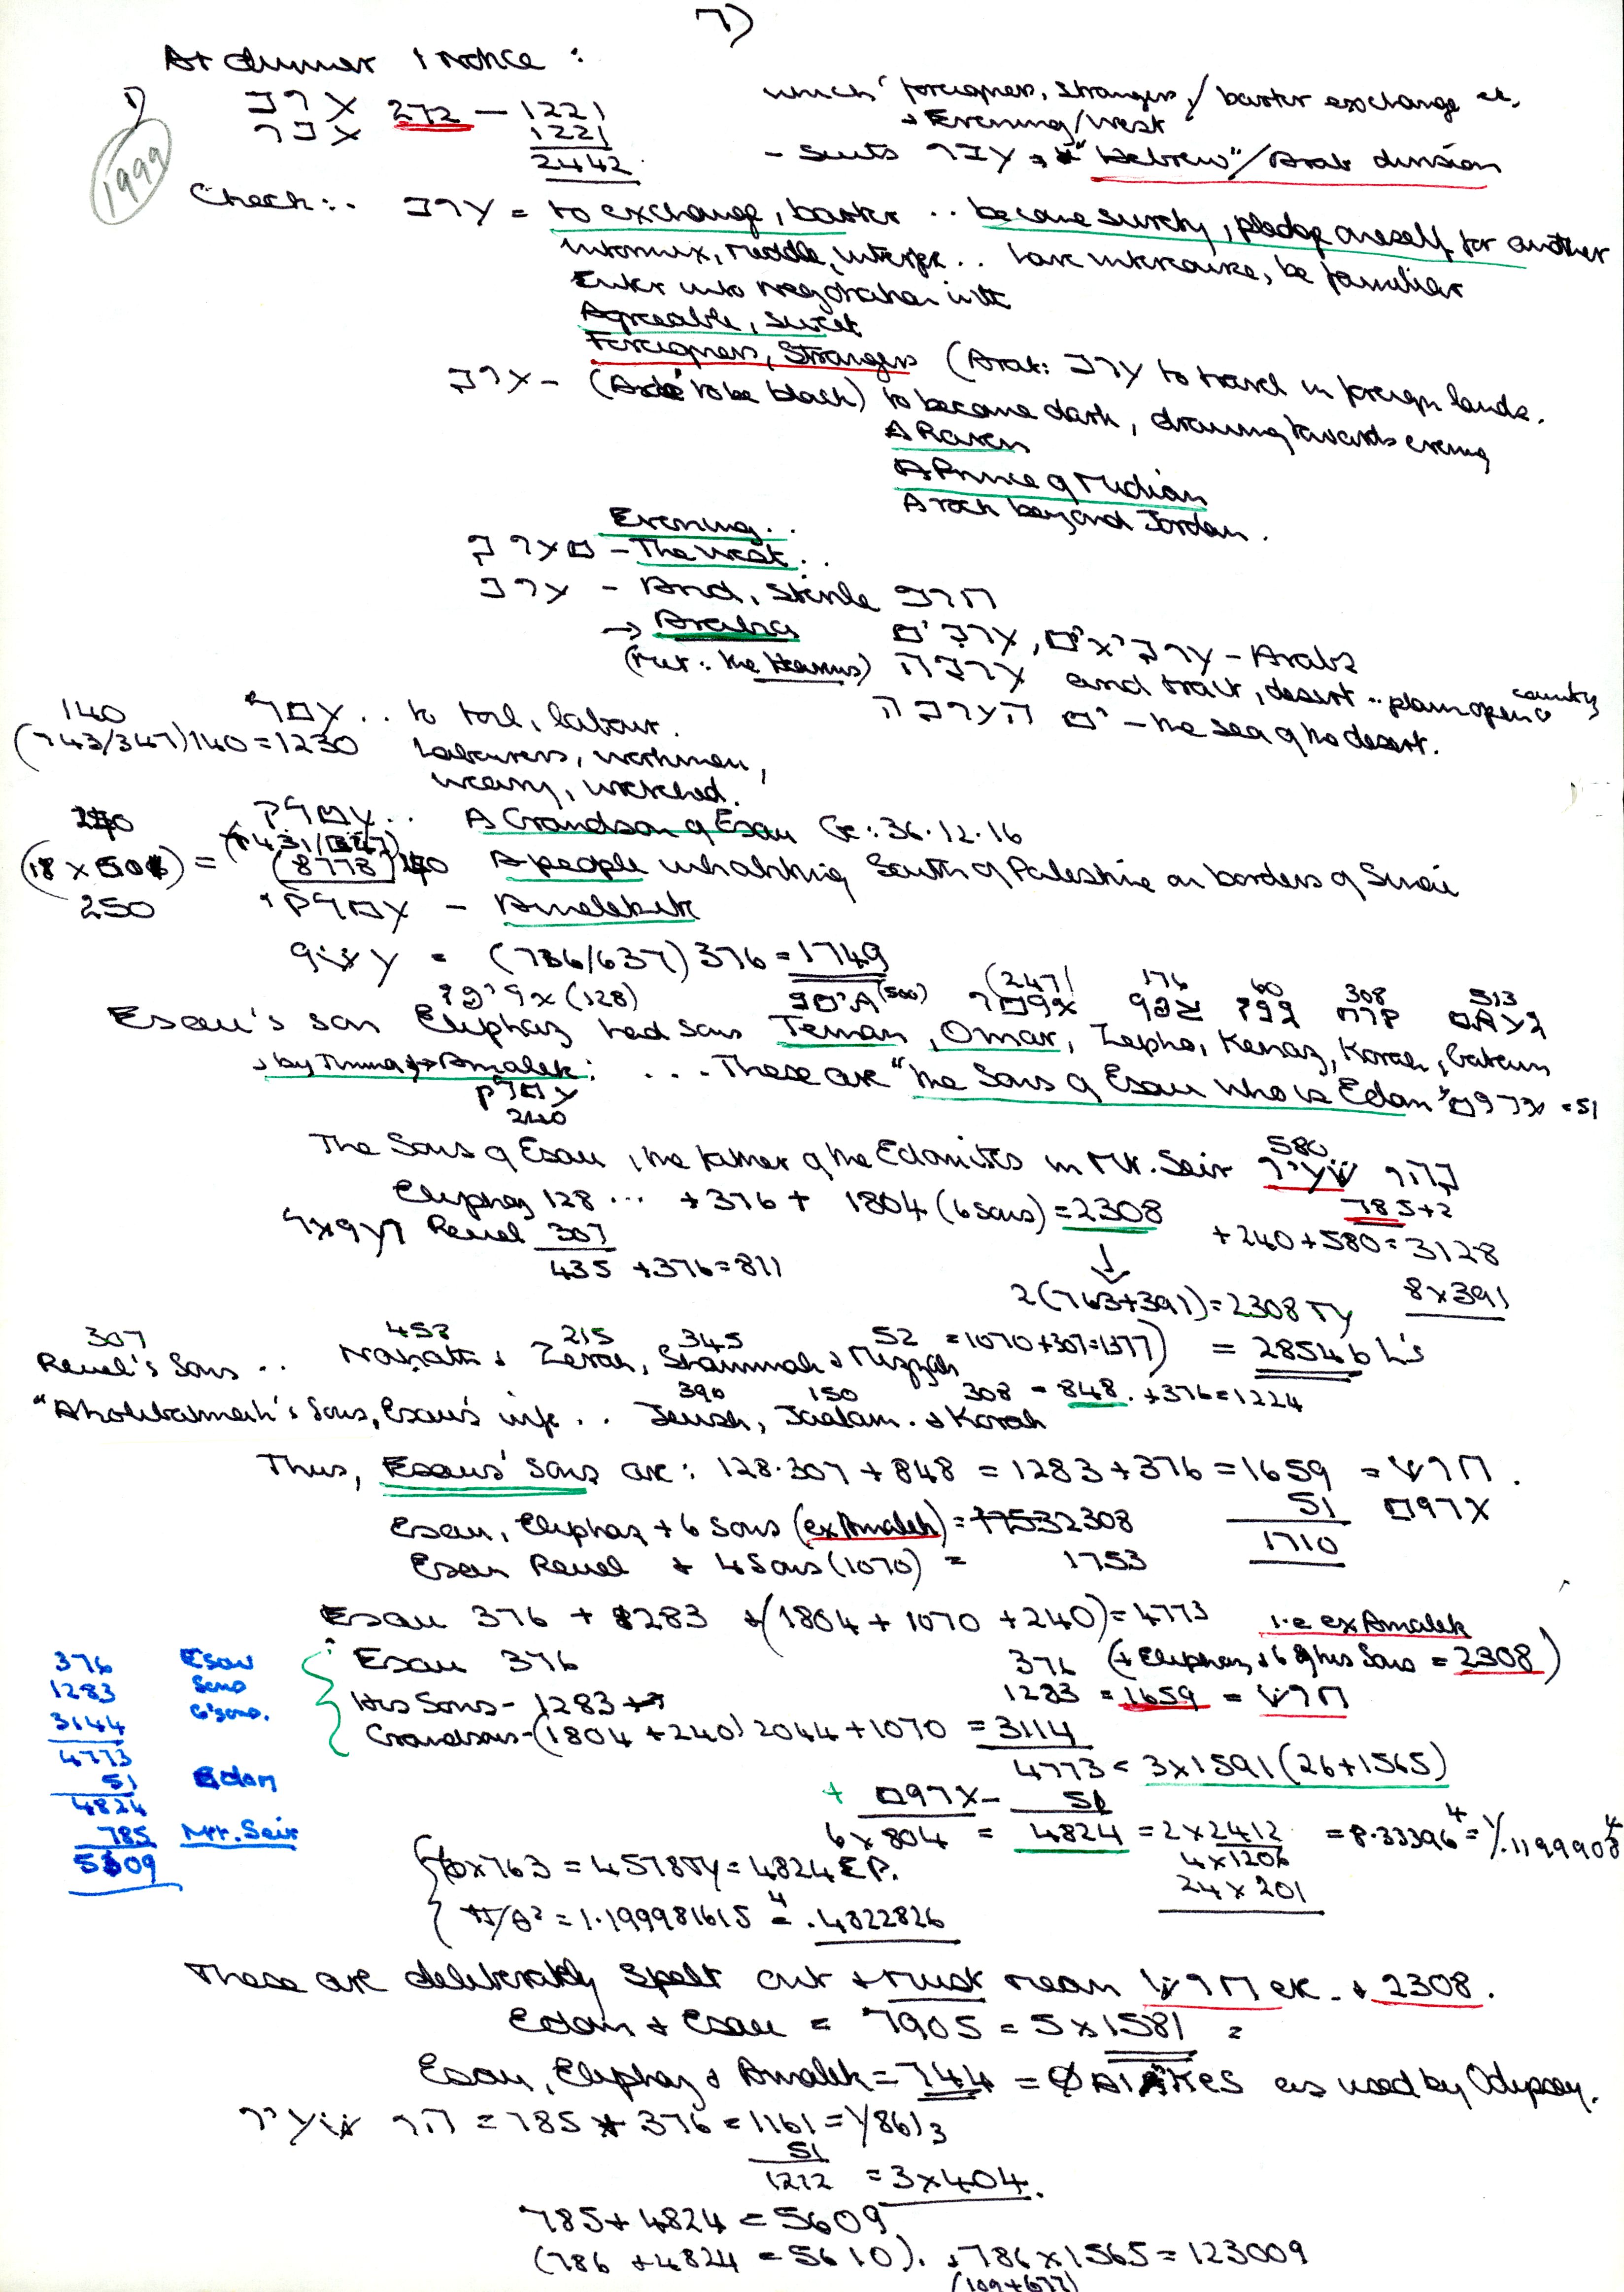 7)
At dinner I notice :
1)
1999
ערב 272 — 1221
עבר 1221
2442
which foreigners, strangers / barter exchange etc.
+ Evening/West
- suits עבר "Hebrew"/Arab division
Check:- ערב = to exchange, barter .. became surety, pledge oneself for another
intermix, meddle, interfere .. have intercourse, be familiar
Enter into negotiation with
Agreeable, sweet
Foreigners, Strangers (Arab: ערב to travel in foreign lands.
ערב - to be black) to become dark, drawing towards evening
A Raven
A Prince of Midian
A rock beyond Jordan.
Evening..
מערב - The West..
ערב - Arid, sterile חרב
→ Arabia ערבים, ערביאים - Arabs
ערבה arid trait, desert .. plain open country
ים הערבה - the sea of the desert.
140 עמל .. to toil, labour.
(743/347) 140 = 1230 Labourers, workmen,
weary, wretched.
240 עמלק .. A Grandson of Esau Ge: 36.12.16
(8778) 240 A people inhabiting South of Palestine on borders of Sinai
250 עמלקי - Amalekite
עשו = (736/637) 376 = 1749
אליפז (128) תימן (500) אומר (247) צפו 176 קנז 60 קרח 308 געתם 513
Esau's son Eliphaz had sons Teman, Omar, Zepho, Kenaz, Korah, Gatam
+ by Timna → Amalek: .... These are "the Sons of Esau who is Edom" אדום = 51
עמלק
240
The Sons of Esau, the father of the Edomites in Mt. Seir 580 שעיר הר
Eliphaz 128 ... + 376 + 1804 (6 sons) = 2308 785+2
רעואל Reuel 307 + 240 + 580 = 3128
435 + 376 = 811
2(763+391) = 2308 TY 8 x 391
307 458 215 345 52 = 1070+307=1377) = 28546 L's
Reuel's Sons .. Nahath + Zerah, Shammah + Mizzah
390 150 308 = 848. + 376 = 1224
"Aholibamah's Sons, Esau's wife .. Jeush, Jaalam. + Korah
Thus, Esaus' Sons are: 128.307 + 848 = 1283 + 376 = 1659 = חרש.
51 אדום
1710
Esau, Eliphaz + 6 Sons (ex Amalek) = 2308
Esau Reuel + 4 Sons (1070) = 1753
Esau 376 + 1283 + (1804 + 1070 + 240) = 4773 i.e ex Amalek
Esau 376 376 (+ Eliphaz + 6 of his Sons = 2308)
His Sons - 1283 1283 = 1659 = חרש
Grandsons - (1804 + 240) 2044 + 1070 = 3114
4773 = 3 x 1591 (26 + 1565)
+ אדום - 51
6 x 804 = 4824 = 2 x 2412 = 8.33396⁴ = 1/.1199908⁴
4 x 1206
24 x 201
376 Esau
1283 Sons
3144 G'sons.
4773
51 Edom
4824
785 Mt. Seir
5609
6 x 763 = 4578 TY = 4824 EP.
π/θ² = 1.199981615⁴ = .4822826
These are deliberately spelt out + must mean חרש etc. + 2308.
Edom + Esau = 7905 = 5 x 1581 =
Esau, Eliphaz + Amalek = 744 = as used by Odyssey.
הר שעיר = 785 + 376 = 1161 = 1/8613
51
1212 = 3 x 404.
785 + 4824 = 5609
(786 + 4824 = 5610). + 786 x 1565 = 123009
(109+677)